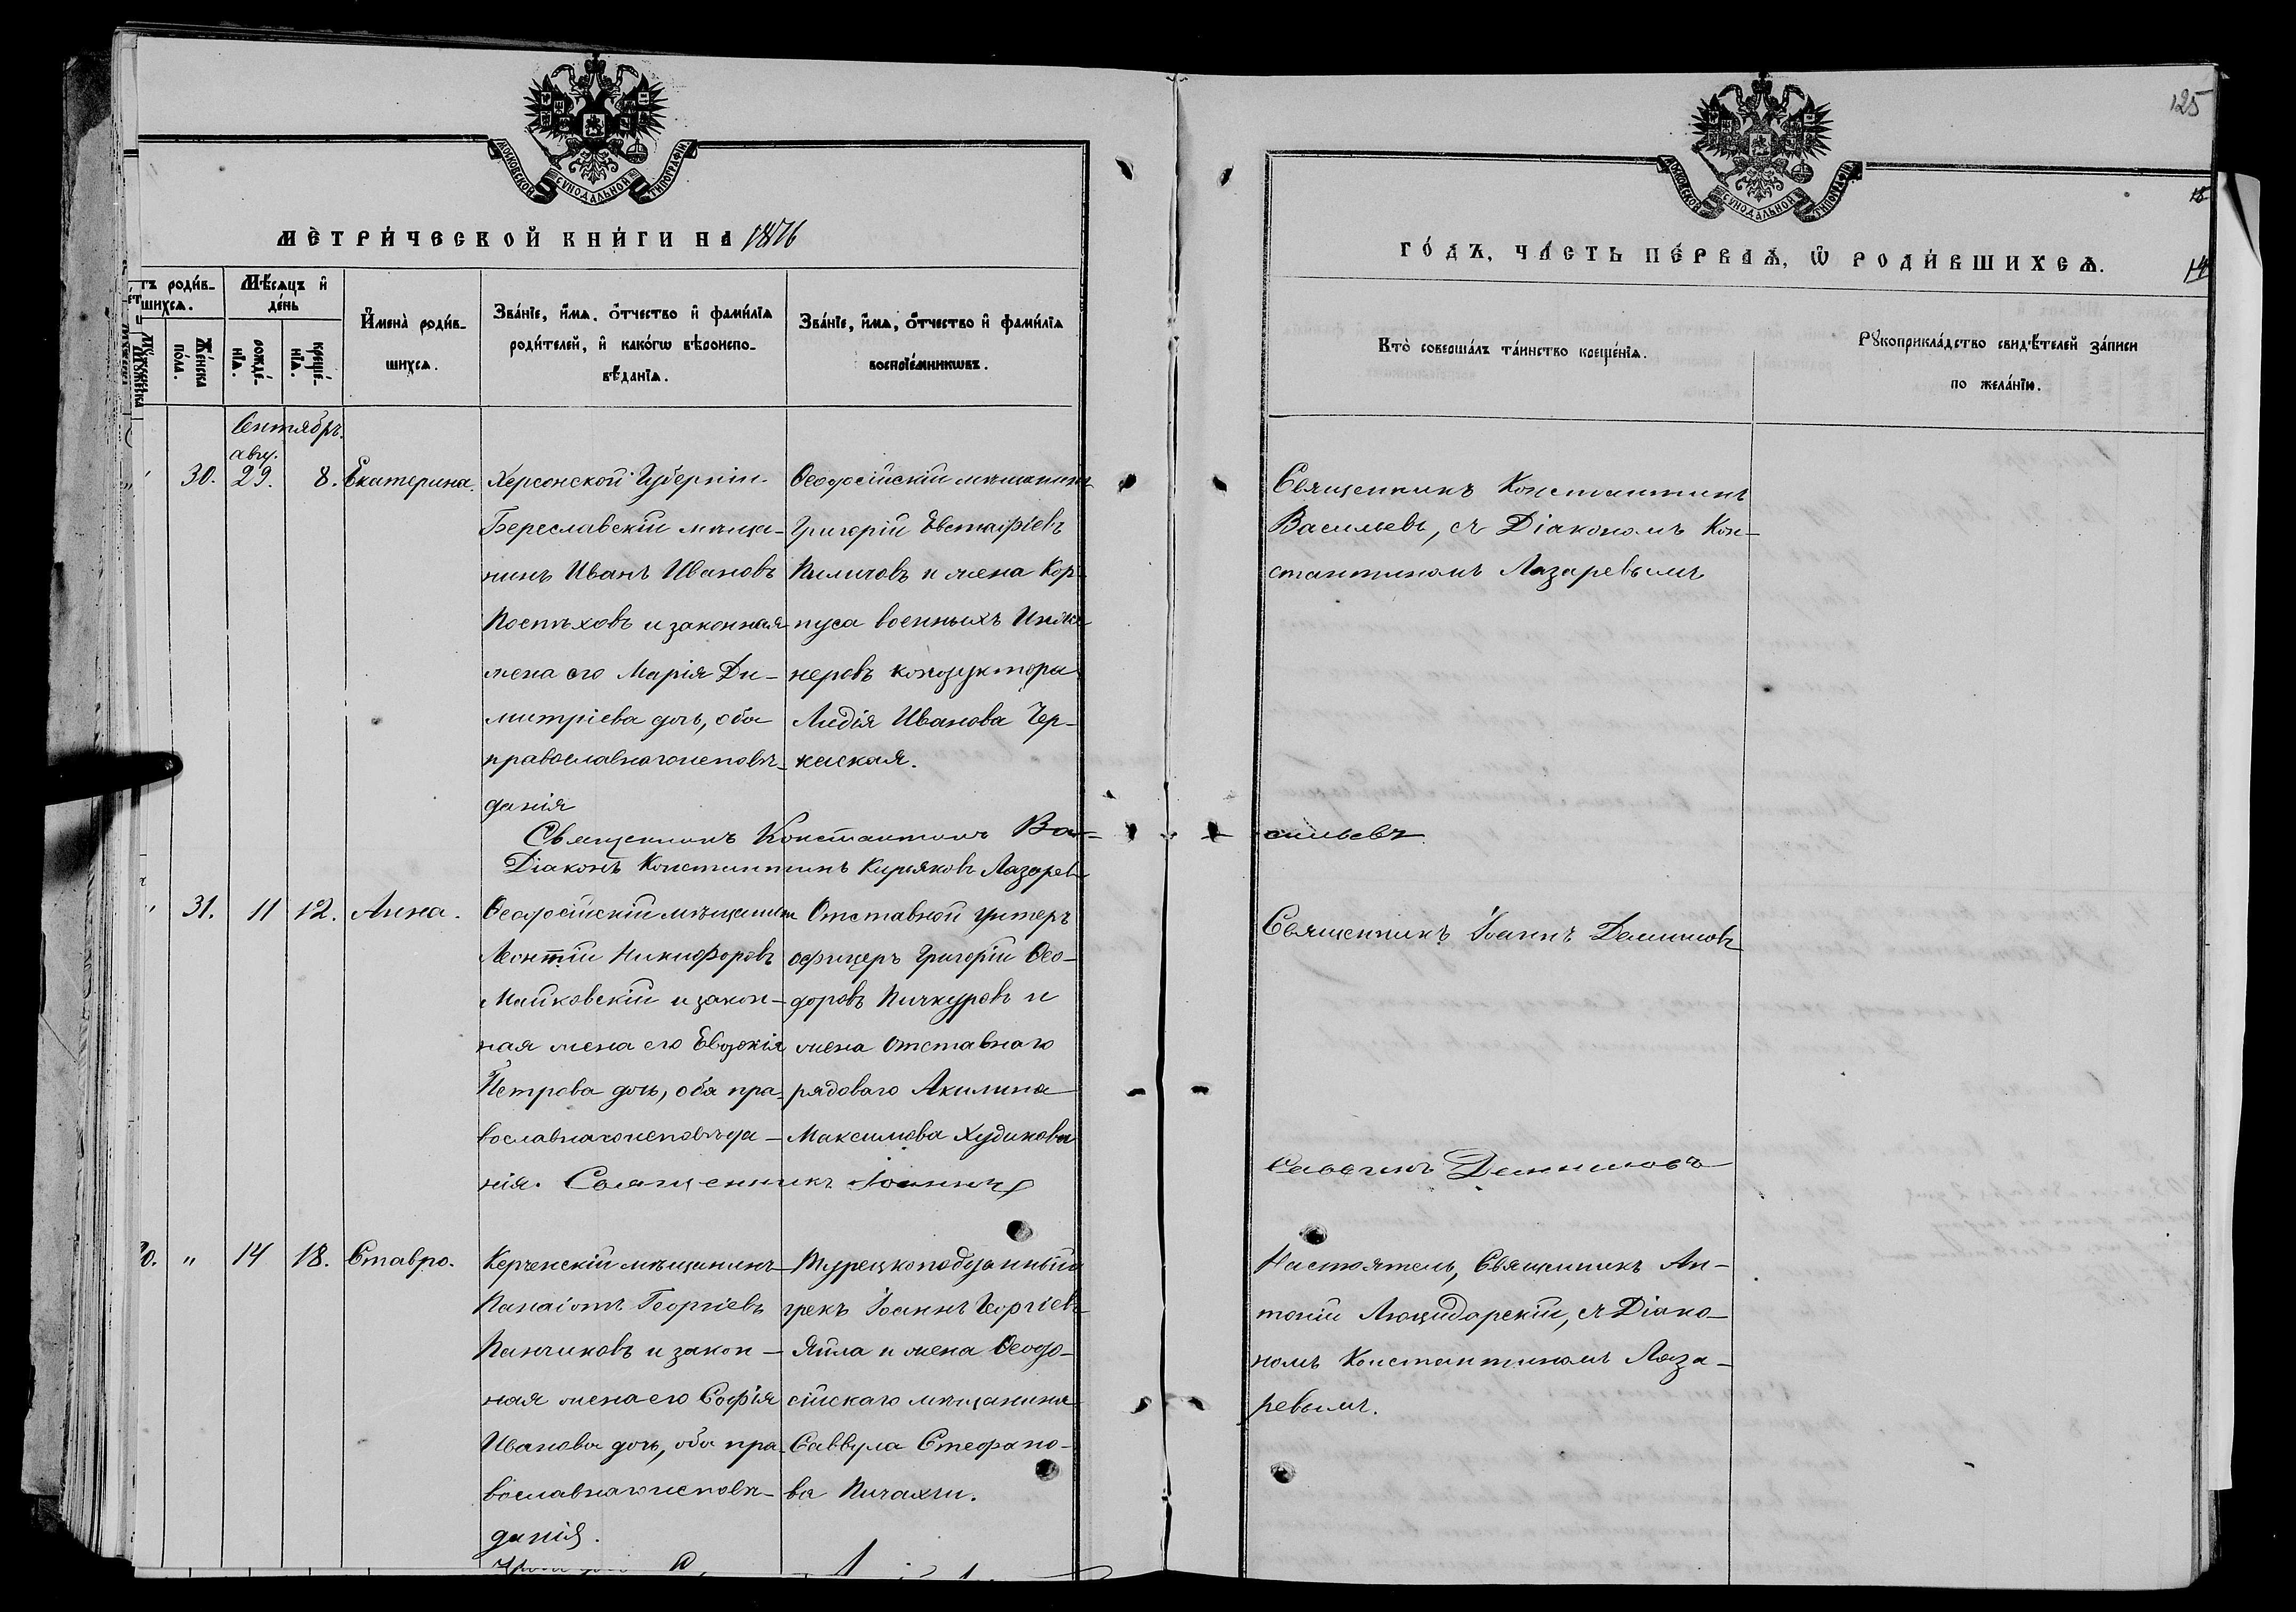 125
МОСКОВСКОЙ СѴНОДАЛЬНОЙ ТИПОГРАФІИ
МОСКОВСКОЙ СѴНОДАЛЬНОЙ ТИПОГРАФІИ
МЕТРИ́ЧЕСКОЙ КНИ́ГИ НА 1876
ГО́ДЪ, ЧА́СТЬ ПЕ́РВАѦ, Ѿ РОДИ́ВШИХСѦ.
14
тъ роди́в-
шихсѧ.
Же́нска
по́ла.
Мѣ́сѧцъ и҆
де́нь
рожде́-
нїѧ.
креще́-
нїѧ.
И҆мена̀ роди́в-
шихсѧ.
Зва́нїе, и҆́мѧ, ѻ҆́тчество и҆ фами́лїѧ
роди́телей, и҆ како́гѡ вѣроиспо-
вѣ́данїѧ.
Зва́нїе, и҆́мѧ, ѻ҆́тчество и҆ фами́лїѧ
воспрїе́мникѡвъ.
Кто̀ соверша́лъ та́инство креще́нїѧ.
Рꙋкоприкла́дство свидѣ́телей за́писи
по жела́нїю.
Сентябрь.
авгу.
30. 29. 8. Екатерина.
Херсонской Губерніи
Береславскій мѣща-
нинъ Иванъ Ивановъ
Поспѣховъ и законная
жена его Марія Ди-
митріева дочь, оба
православнаго исповѣ-
данія
Ѳеодосійскій мѣщанинъ
Григорій Евстафіевъ
Пиличовъ и жена Кор-
пуса военныхъ Инже-
неровъ кондуктора
Лидія Иванова Чер-
кесская.
Священникъ Константинъ
Васильевъ, съ Діакономъ Кон-
стантиномъ Лазаревымъ
Священникъ Константинъ Ва-
сильевъ
Діаконъ Константинъ Кирьяковъ Лазаревъ
" 31. 11 12. Анна.
Ѳеодосійскій мѣщанинъ
Леонтій Никифоровъ
Майковскій и закон-
ная жена его Евдокія
Петрова дочь, оба пра-
вославнаго исповѣда-
нія.
Отставной унтеръ
офицеръ Григорій Ѳео-
доровъ Пичкуровъ и
жена отставнаго
рядоваго Акилина
Максимова Худикова
Священникъ Іоаннъ Деминовъ
Священникъ Іоаннъ
Деминовъ
20. " 14 18. Ставро.
Керченскій мѣщанинъ
Панаіотъ Георгіевъ
Панчиковъ и закон-
ная жена его Софія
Иванова дочь, оба пра-
вославнаго исповѣ-
данія.
Турецкоподданный
грекъ Іоаннъ Георгіевъ
Яйла и жена Ѳеодо-
сійскаго мѣщанина
Саввула Стефано-
ва Пичахчи.
Настоятель, Священникъ Ан-
тоній Люцидарскій, съ Діако-
номъ Константиномъ Лаза-
ревымъ.